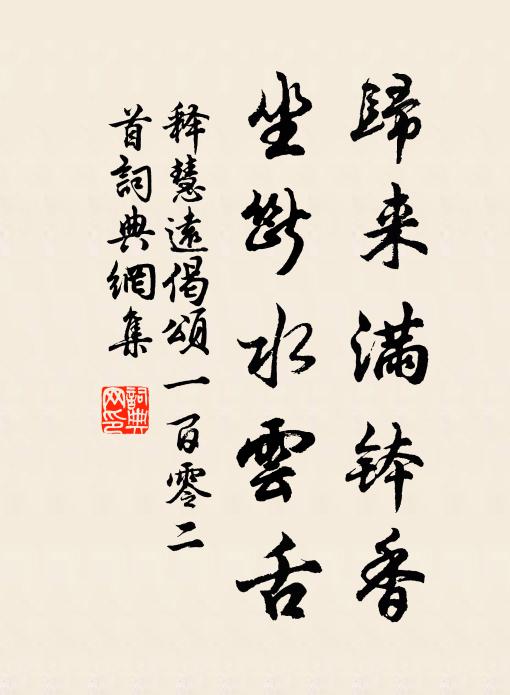 歸来滿鉢香
坐斷水雲舌
释慧遠偈頌一百零二
首詞典網集
詞典网印